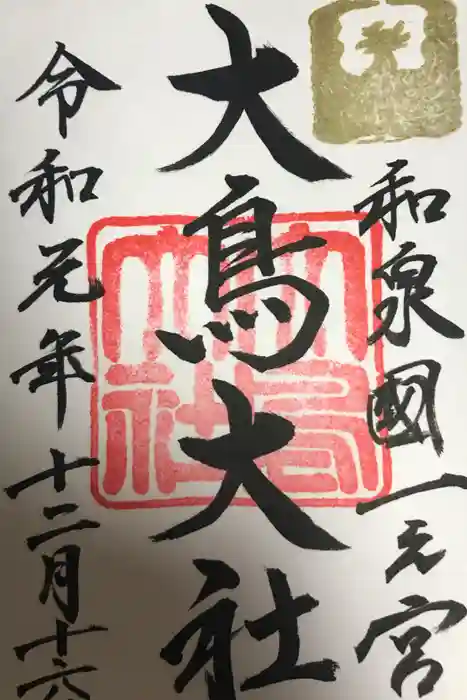 和泉國一之宮
大鳥大社
令和元年十二月十六
大鳥
大社